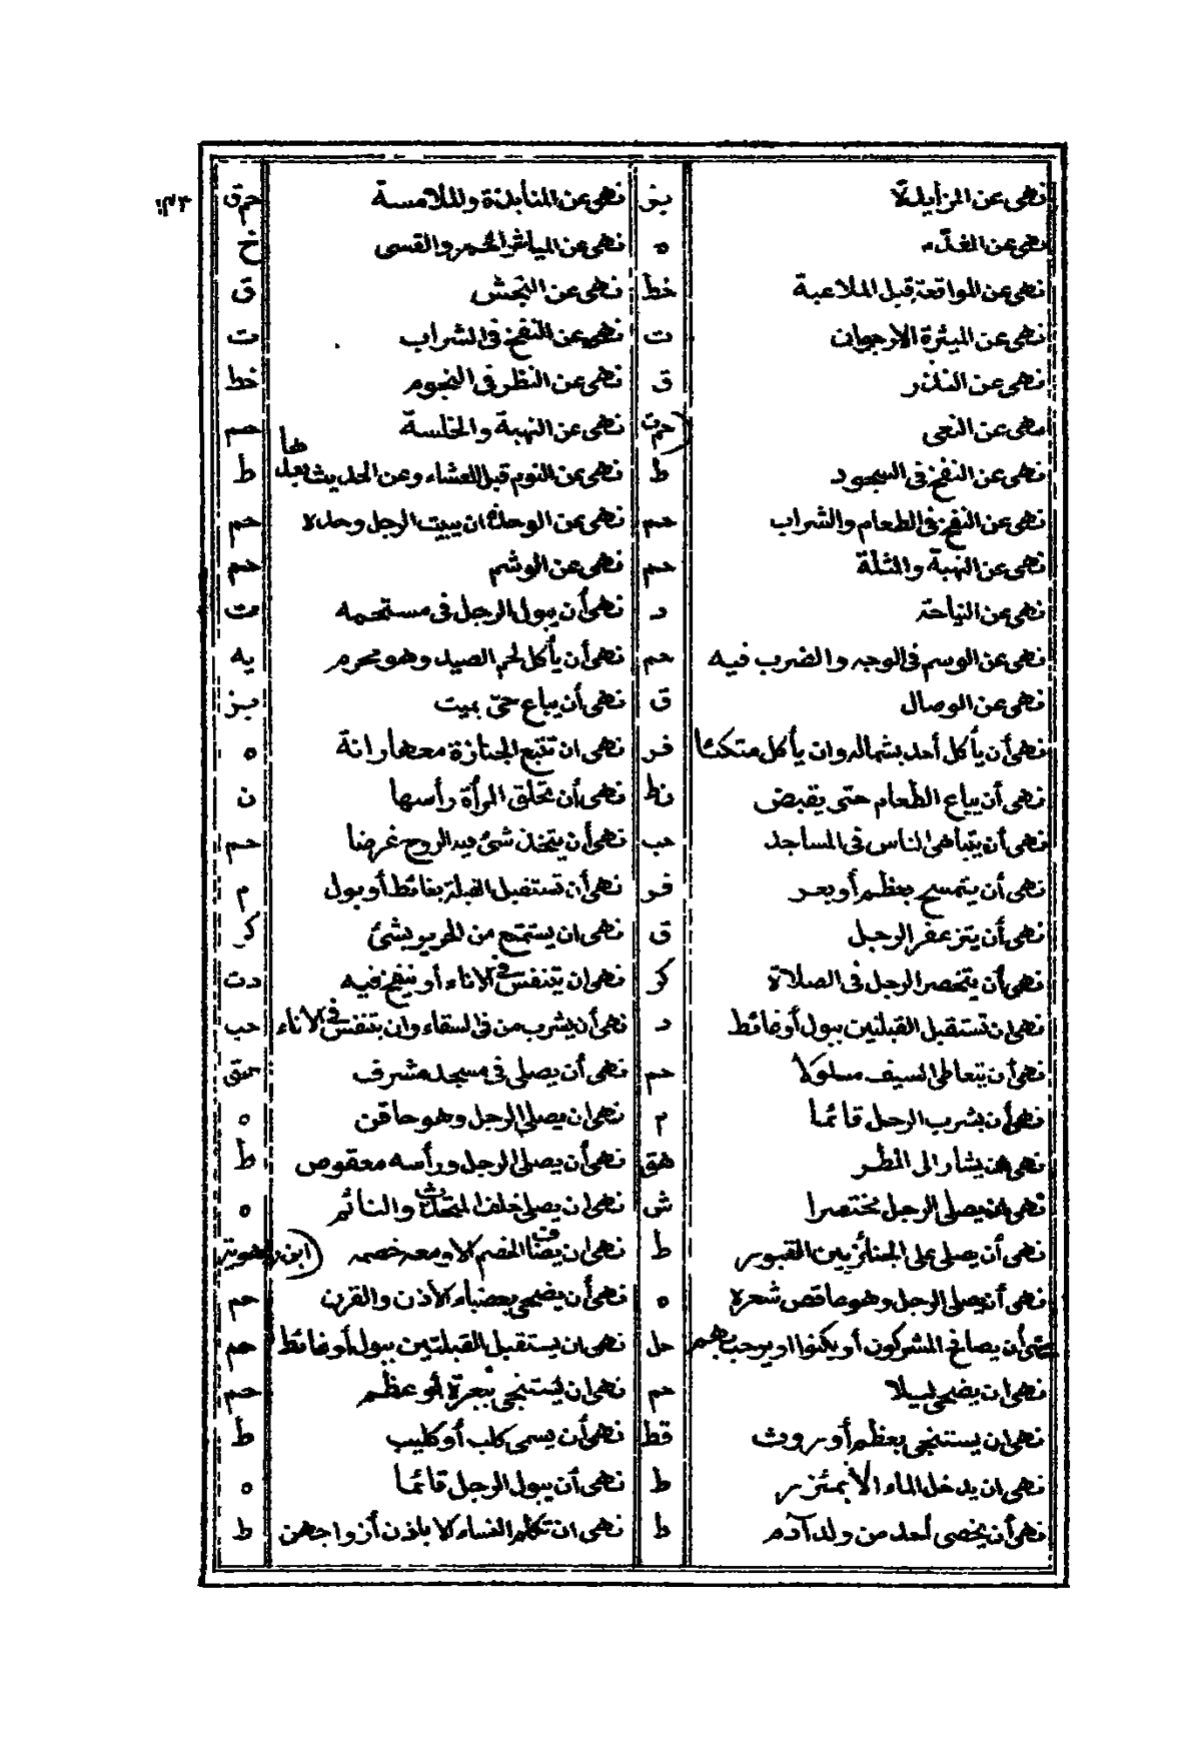 نهى عن المزايدة بز نهى عن المنابذة والملامسة حم ق
ه نهى عن المياثر الحمر والقسى خ
نهى عن المواقعة قبل الملاعبة خط نهى عن النجش ق
نهى عن الميثرة الارجوان ت نهى عن النفخ فى الشراب ت
نهى عن النذر ق نهى عن النظر فى النجوم خط
نهى عن النعى (حم ت نهى عن النهبة والخلسة حم
نهى عن النفخ فى السجود ط نهى عن النوم قبل العشاء وعن الحديث بعدها ط
نهى عن النفخ فى الطعام والشراب حم نهى عن الوحدة ان يبيت الرجل وحده حم
نهى عن النهبة والمثلة حم نهى عن الوشم حم
نهى عن النياحة د نهى أن يبول الرجل فى مستحمه ت
نهى عن الوسم فى الوجه والضرب فيه حم نهى أن يأكل لحم الصيد وهو محرم يه
نهى عن الوصال ق نهى أن يباع حىّ بميت بز
نهى أن يأكل أحد بشماله وان يأكل متكئا فر نهى ان تتبع الجنازة معها رانة ه
نهى أن يباع الطعام حتى يقبض نط نهى أن تحلق المرأة رأسها ن
نهى أن يتباهى الناس فى المساجد حب نهى أن يتخذ شئ فيه الروح غرضا حم
نهى أن يتمسح بعظم أو بعر فر نهى أن تستقبل القبلة بغائط أو بول م
نهى أن يتزعفر الرجل ق نهى ان يستمتع من الحرير بشئ كر
نهى أن يتخصر الرجل فى الصلاة كر نهى ان يتنفس فى الاناء أو ينفخ فيه د ت
نهى ان تستقبل القبلتين ببول أو غائط د نهى أن يشرب من فى السقاء وان يتنفس فى الاناء حب
نهى أن يتعاطى السيف مسلولا حم نهى أن يصلى فى مسجد مشرف هق
نهى أن يشرب الرجل قائما م نهى ان يصلى الرجل وهو حاقن ه
نهى ان يشار الى المطر هق نهى أن يصلى الرجل ورأسه معقوص ط
نهى ان يصلى الرجل مختصرا ش نهى ان يصلى خلف المتحدث والنائم ه
نهى أن يصلى على الجنائز بين القبور ط نهى ان يضاف الخصم الا ومعه خصمه (ابن راهويه
نهى أن يصلى الرجل وهو عاقص شعره ه نهى أن يضحى بعضباء الأذن والقرن حم
نهى أن يصافح المشركون أو يكنوا او يرحب بهم حل نهى ان يستقبل القبلتين ببول أو غائط حم
نهى ان يضحى ليلا حم نهى ان يستنجى ببعرة أو عظم حم
نهى ان يستنجى بعظم أو روث قط نهى أن يسمى كلب أو كليب ط
نهى ان يدخل الماء الا بمئزر ط نهى أن يبول الرجل قائما ه
نهى أن يخصى أحد من ولد آدم ط نهى ان تكلم النساء الا باذن أزواجهن ط